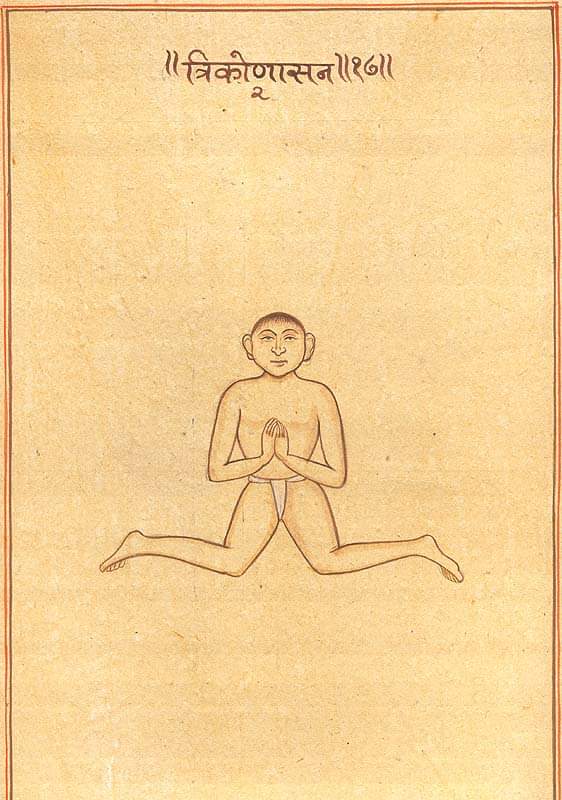 ॥त्रिकोणासन॥१७॥
२